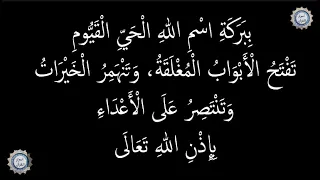 بِبَرَكَةِ اسْمِ اللهِ الْحَيِّ الْقَيُّومِ
تَفْتَحُ الْأَبْوَابُ الْمُغْلَقَةُ، وَتَنْهَمِرُ الْخَيْرَاتُ
وَتَنْتَصِرُ عَلَى الْأَعْدَاءِ
بِإِذْنِ اللهِ تَعَالَى